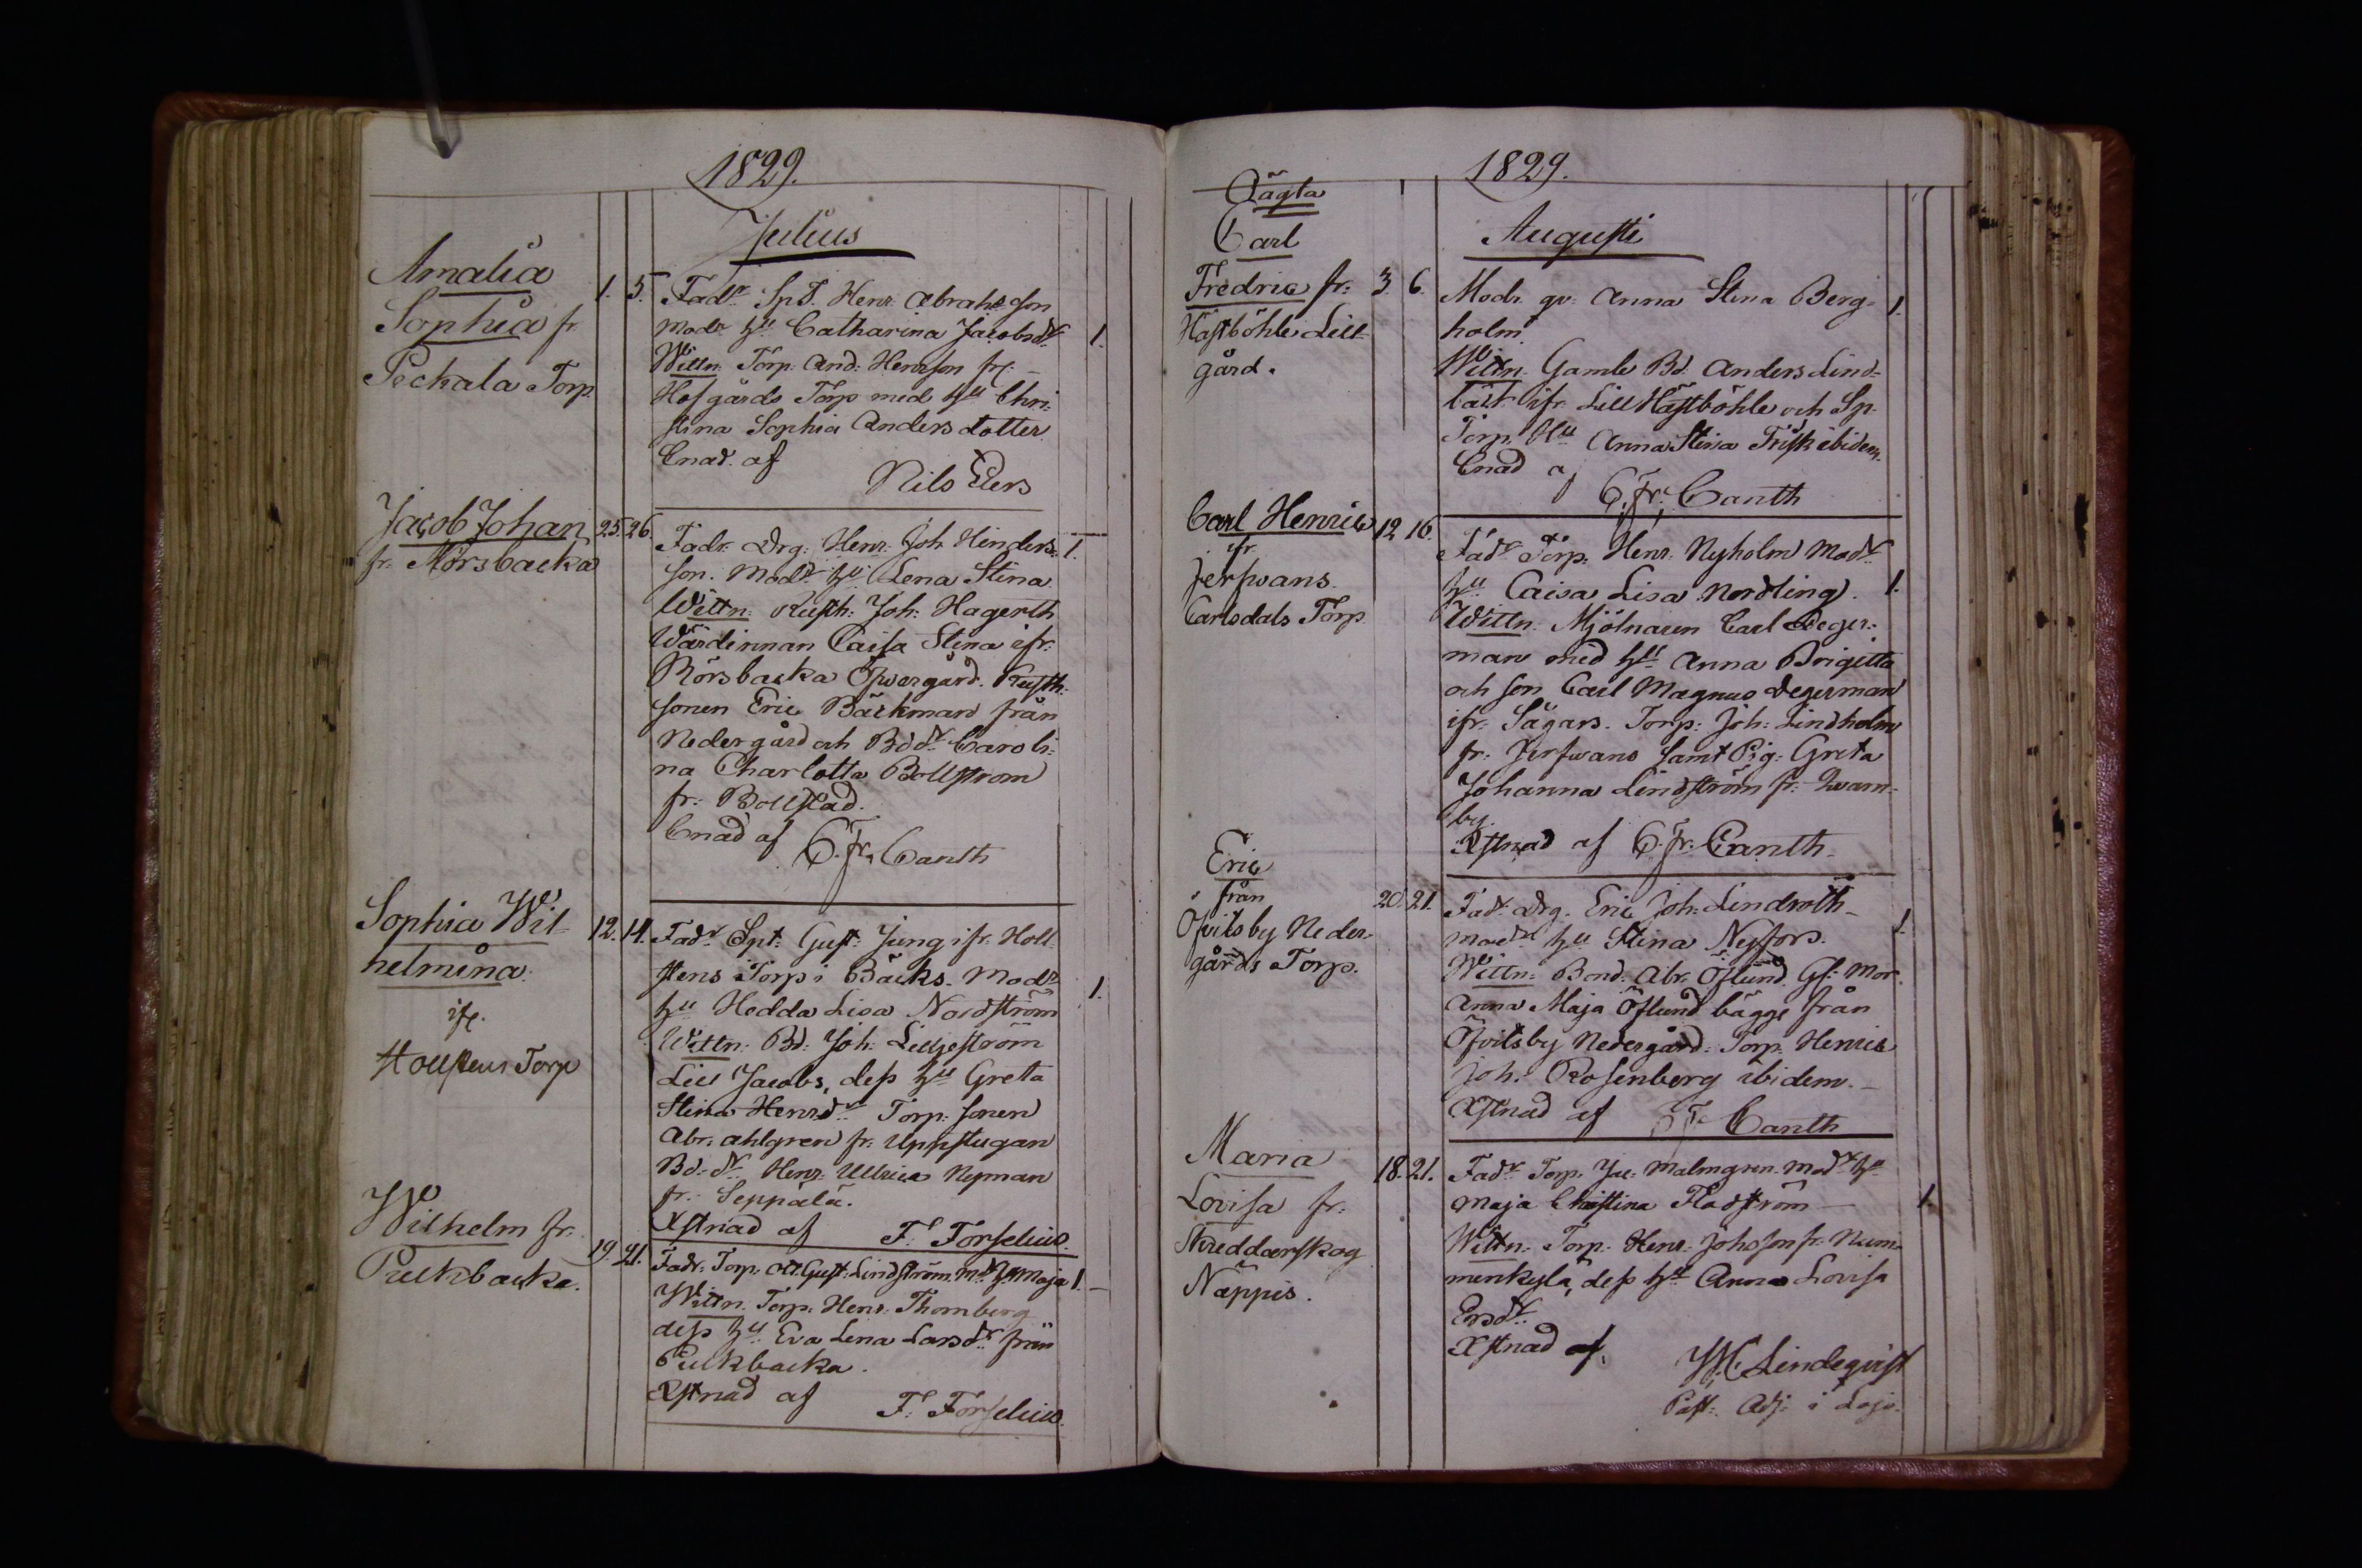 1829.
Julius
Amalia
Sophia fr
Peckala Torp.
1. 5.
Fadr Spt. Henr. Abrahsson
modr hu Catharina Jacobsdr
1.
Wittn: Torp. And: Henrson fr. -
Hofgårds Torp med hu Chri-
stina Sophia Anders dotter
Cnad. af
Nils Elers
Jacob Johan
fr. Mörsbacka
25. 26.
Fadr. Drg: Henr. Joh Hinders-
1.
son. Modr hu Lena Stina
Wittn: Rusth: Joh: Hagerth
Wärdinnan Caisa Stina ifr.
Rörsbacka Öfwergård. Rusth.
sonen Eric Bäckman från
Nedergård och Bddr Caroli-
na Charlotta Bollstrom
fr. Bollstad.
Cnad af C. Fr. Canth
Sophia Wil-
helmina
ifr.
Hollstens Torp
12. 14.
Fadr Spt: Gust: Jung ifr. Holl-
stens Torp i Bäcks. Modr
1.
hu Hedda Lisa Nordström
Wittn: Bd: Joh: Lilljeström
Lill Jacobs, dess hu Greta
Stina Henrsdr Torp. sonen
Abr. Ahlgren fr. Uppstugan
Bd. dr Henr. Ullrica Nyman
fr. Seppälä.
Xstnad af F. Forselius.
Wilhelm fr.
Puckbacka.
19. 21.
Fadr. Torp. Gust: Lindström. Mdr hu Maja
1.
Wittn. Torp. Henr. Thornberg
dess hu Eva Lena Larsdr från
Puckbacka.
Xstnad af F. Forselius.
1829.
Augusti
Oägta
Carl
Fredric fr.
Hästböhle Lill-
gård.
3. 6.
Modr. qv. Anna Stina Berg-
1.
holm.
Wittn. Gamle Bd. Anders Lind-
ifr. Lill Hästböhle och Sp.
Torp. Hu Anna Stina Frisk ibidem.
Cnad af
C. Fr. Canth
Carl Henric
ifr.
Jerfwans
Carlsdals Torp
12 16.
Fadr Torp. Henr. Nyholm Modr
hu Caisa Lisa Nordling.
1.
Wittn. Mjölnaren Carl Deger-
man med hu Anna Brigitta
och son Carl Magnus Degerman
ifr. Sågars. Torp: Joh: Lindholm
fr. Jerfwans samt Pig: Greta
Johanna Lindström fr. Qvarn-
by.
Xstnad af C. Fr. Canth
Eric
från
Öfvitsby Neder-
gårds Torp.
20. 21.
Fadr Drg. Eric Joh: Lindroth-
1.
modr hu Stina Nyfors.
Wittn: Bond. Abr. Öflund. Gl: Mor.
Anna Maja Öflund bägge från
Öfvitsby Nedergård. Torp. Henric
Joh: Rosenberg ibidem. -
Xstnad af F. Canth
Maria
Lovisa fr.
Skreddarskog
Näppis.
18. 21.
Fadr Torp. Jac: Malmgren. Modr hu
Maja Christina Flodström -
1.
Wittn. Torp. Henr. Johsson fr. Num-
menkylä, dess hu Anna Lovisa
Ersdr.
Xstnad af
Lindeqvist
Past: Adj: i Lojo.